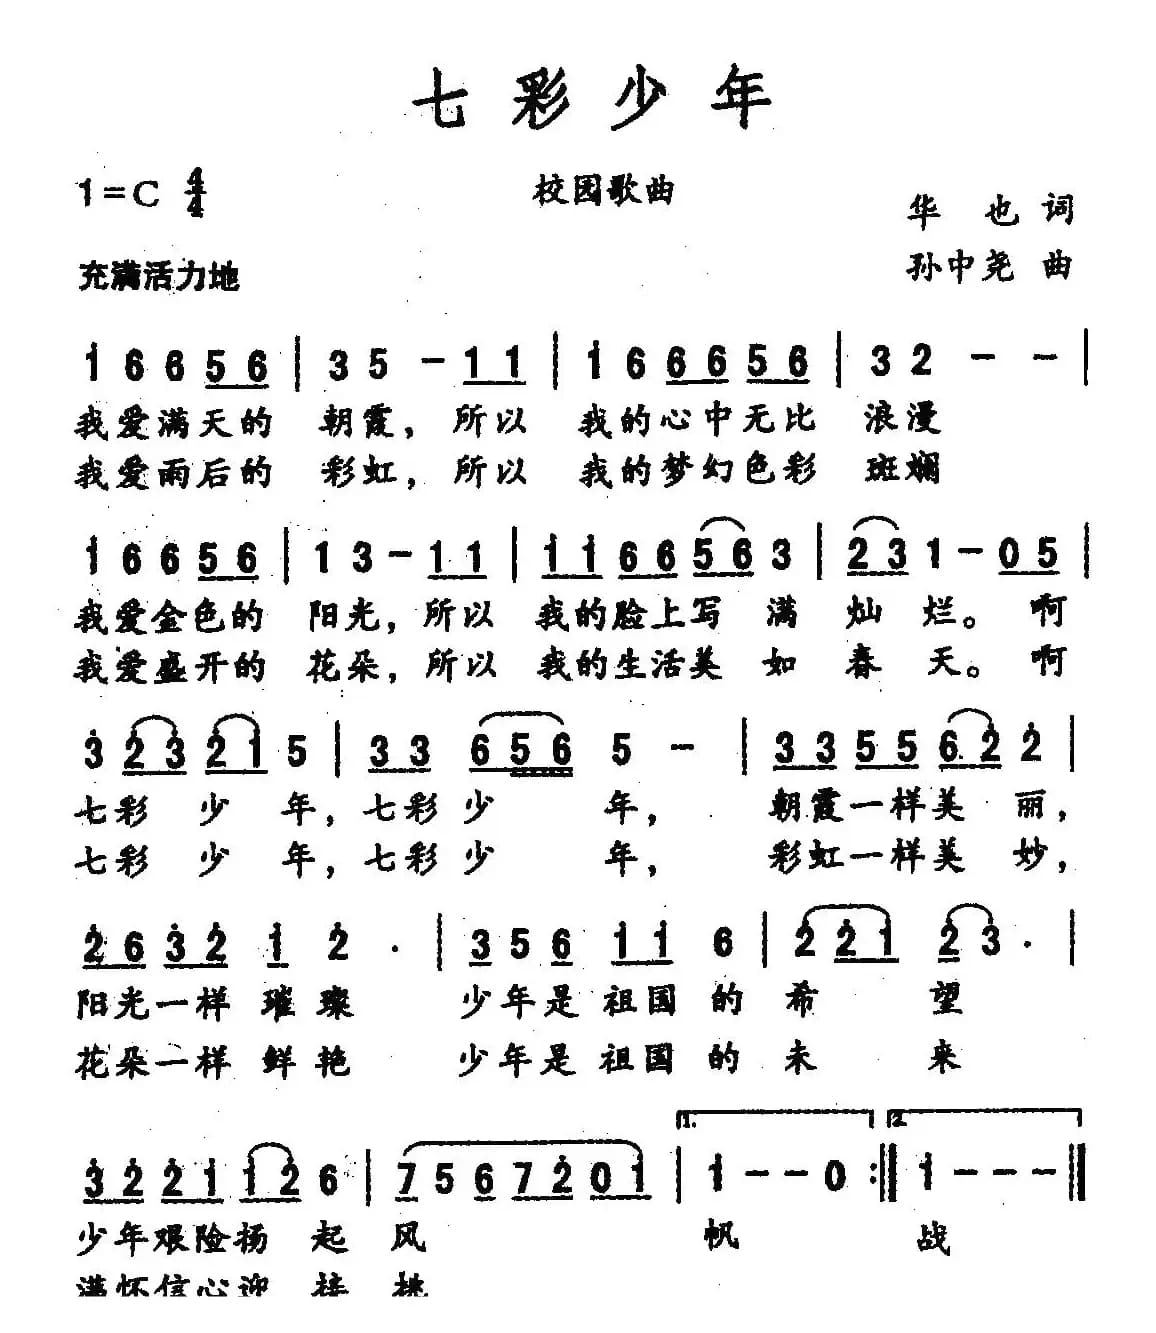 七彩少年
1=C 4/4
校园歌曲
华也词
充满活力地
孙中尧 曲
1 6 6 5 6 | 3 5 - 1 1 | 1 6 6 6 5 6 | 3 2 - - |
我爱满天的 朝霞，所以 我的心中无比 浪漫
我爱雨后的 彩虹，所以 我的梦幻色彩 斑斓
1 6 6 5 6 | 1 3 - 1 1 | 1 1 6 6 5 6 3 | 2 3 1 - 0 5 |
我爱金色的 阳光，所以 我的脸上写 满 灿 烂。 啊
我爱盛开的 花朵，所以 我的生活美 如 春 天。 啊
3 2 3 2 1 5 | 3 3 6 5 6 5 - | 3 3 5 5 6 2 2 |
七彩 少 年，七彩 少 年， 朝霞一样美 丽，
七彩 少 年，七彩 少 年， 彩虹一样美 妙，
2 6 3 2 1 2 · | 3 5 6 1 1 6 | 2 2 1 2 3 · |
阳光一样 璀 璨 少年是 祖国 的 希 望
花朵一样 鲜 艳 少年是 祖国 的 未 来
1. 2.
3 2 2 1 1 2 6 | 7 5 6 7 2 0 1 | 1 - - 0 :| 1 - - - ‖
少年艰险扬 起 风 帆 战
满怀信心迎 接 挑